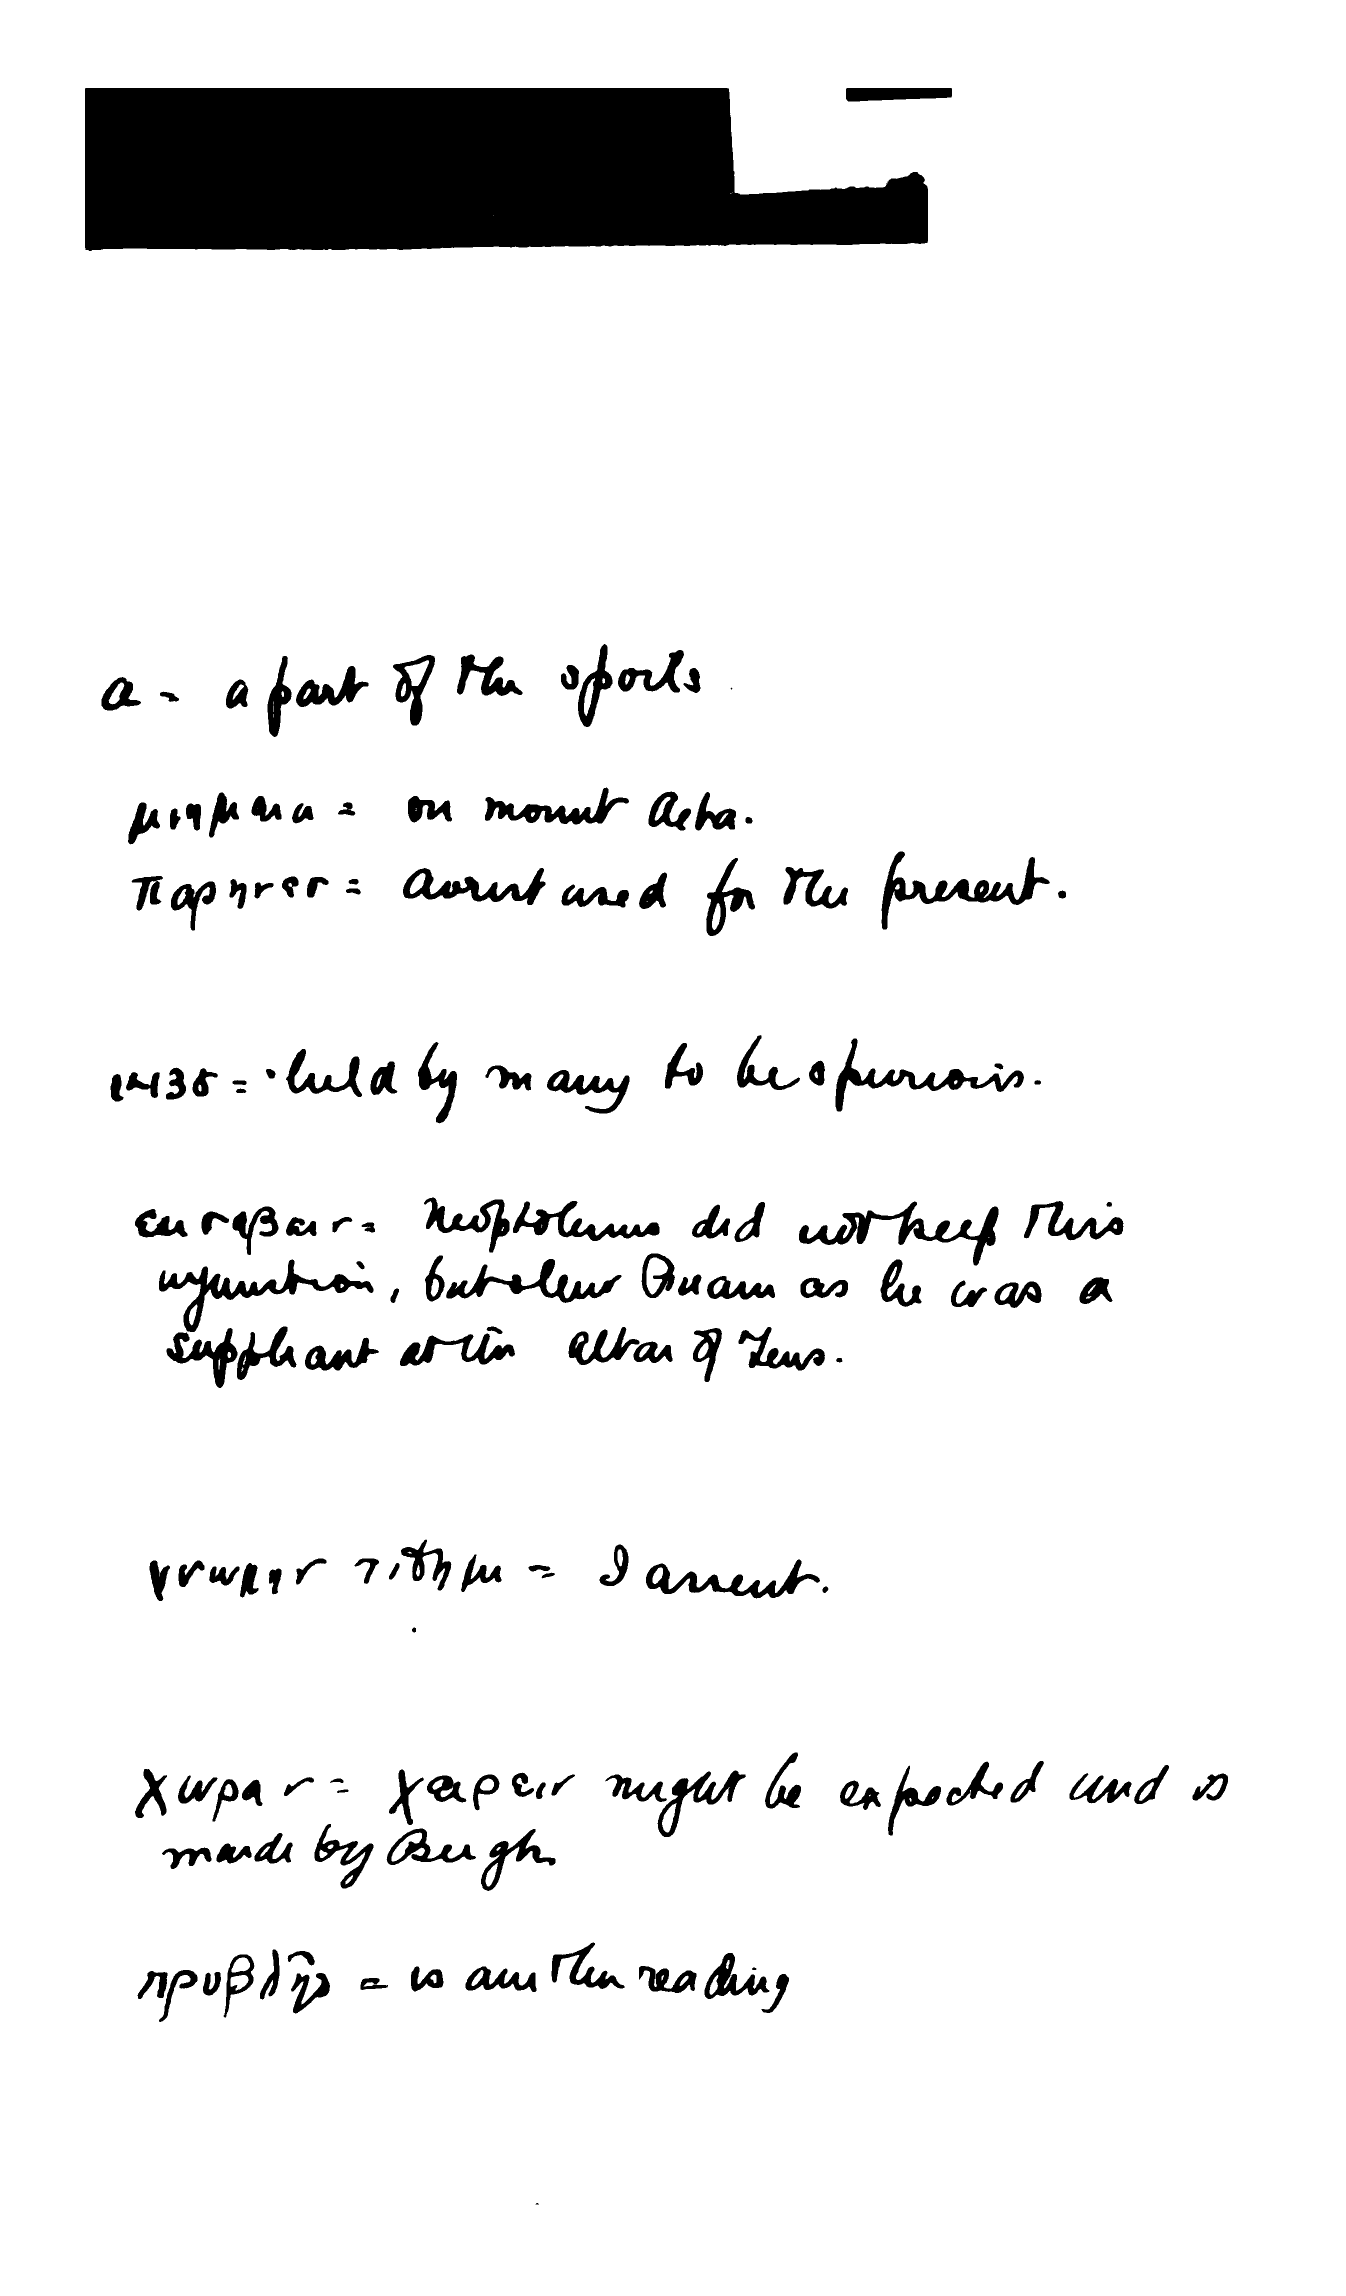 α - a part of the spoils
μνημεια = on mount Aetna.
παρηνεσ = aorist used for the present.
= held by many to be spurious.
ευσεβειν = Neoptolemus did not keep this
injunction, but slew Priam as he was a
suppliant at the altar of Zeus.
γνωμην τιθημι = I assent.
χωραν = χαιρειν might be expected and is
made by Bergh.
προβλης = is another reading